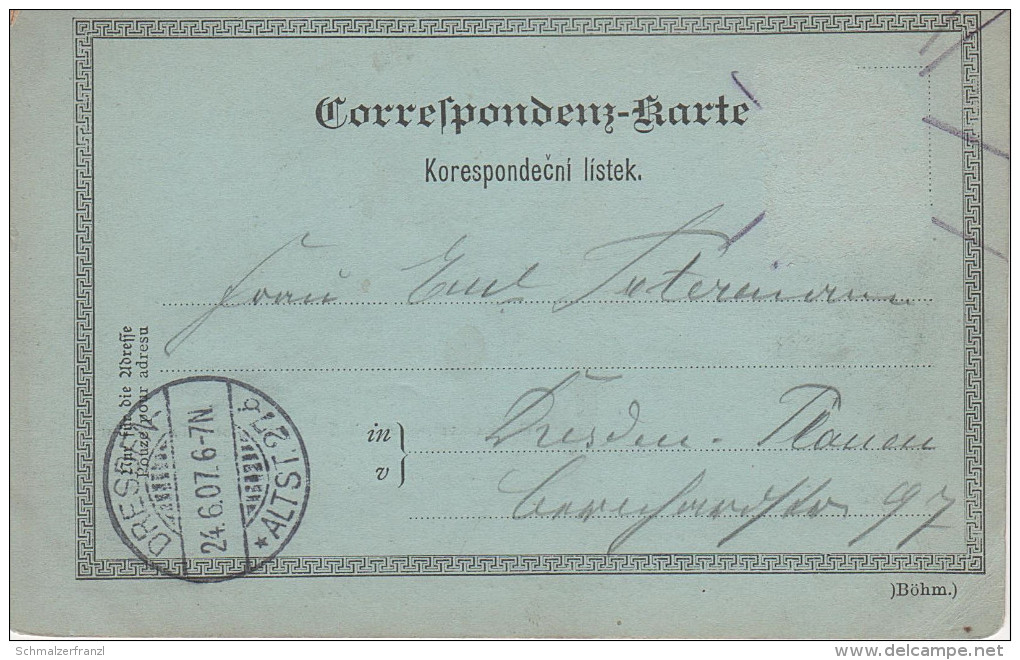 Correspondenz-Karte
Korespondeční lístek.
Frau Emil
Nur für die Adresse
Pouze pour adresu
in
v
Dresden-Plauen
Bernhardstr 97
DRESDEN
24.6.07.6-7N.
* ALTST. 27 b
)Böhm.)
Schmalzerfranzl
www.delcampe.net